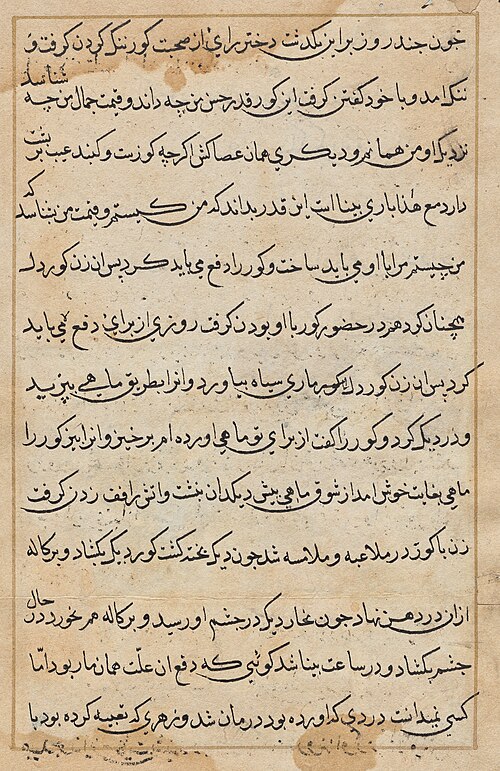 خون چند روز برین بگذشت دختر رای از صحبت کور تنک کردن کرفت و
ننک امد و با خود کفتن کرفت این کور قدر حسن من چه داند و قیمت جمال من چه شناسد
نزدیک او من همانم و دیکری همان عصاکش اکرچه کوزپشت و کنند عیب بر
دارد مع هذا باری بینا است این قدر بداند که من کیستم و قیمت من بشناسد که
من چیستم مرا با او می باید ساخت و کور را دفع می باید کرد پس ان زن کور دل
همچنان کرد هم در حضور کور با او بودن کرفت روزی از برای دفع می باید
کرد پس ان زن کور دل ماری سیاه بیاورد و انرا بطریق ماهی بپزید
و در دیک کرد و کور را کفت از برای تو ماهی اورده ام برخیز و انرا بپز کور را
ماهی بغایت خوش امد از شوق ماهی پیش دیکدان بنشت و اتش را فف زدن کرفت
زن با کوز در ملاعبه و ملامسه شد جون دیک پخته کشت کور دیک بکشاد و پرکاله
ازان در دهن نهاد جون بخار دیک در جشم او رسید و پرکاله هم بخورد در حال
جشم بکشاد و در ساعت بینا شد کوئیی که دفع ان علت همان مار بود امّا
کسی نمیدانست دردی که اورده بود درمان شد و زهری که تعبیه کرده بود با